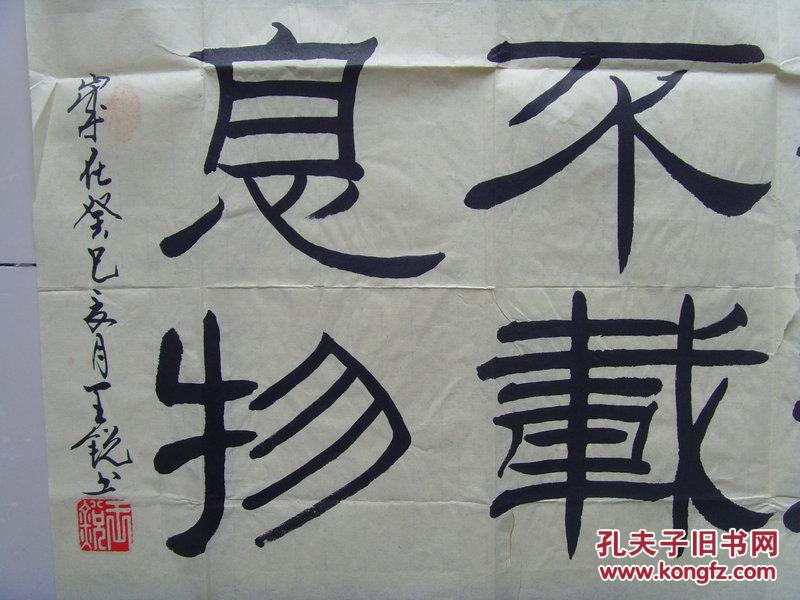 不息
載物
歲在癸巳月王銳书
王銳
孔夫子旧书网
www.kongfz.com